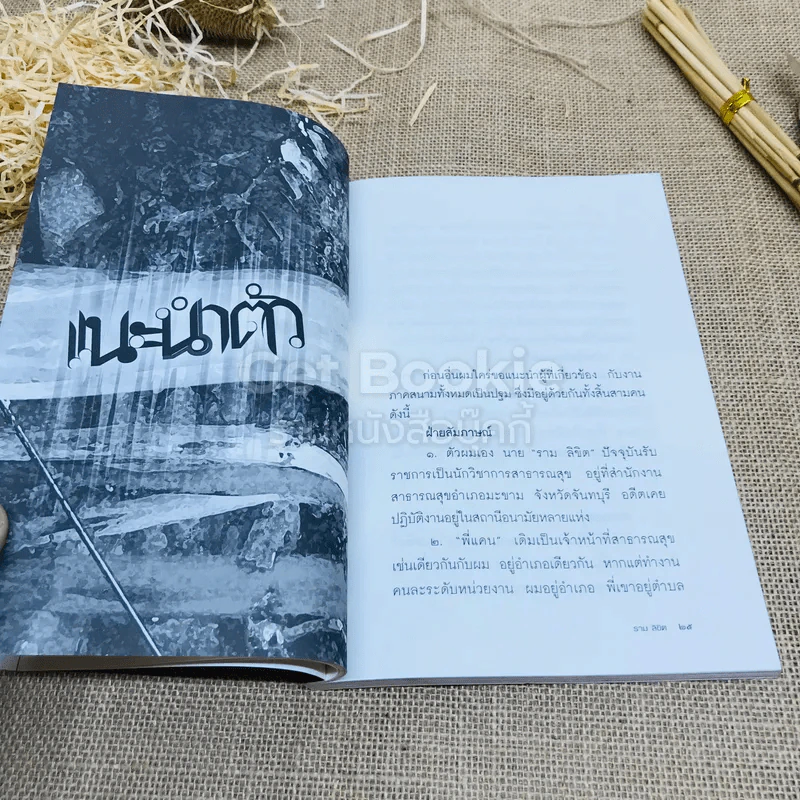 แนะนำตัว
Get Bookie
ร้านหนังสือบุ๊กกี้
ก่อนอื่นผมใคร่ขอแนะนำผู้ที่เกี่ยวข้อง กับงาน
ภาคสนามทั้งหมดเป็นปฐม ซึ่งมีอยู่ด้วยกันทั้งสิ้นสามคน
ดังนี้
ฝ่ายสัมภาษณ์
๑. ตัวผมเอง นาย "ราม ลิขิต" ปัจจุบันรับ
ราชการเป็นนักวิชาการสาธารณสุข อยู่ที่สำนักงาน
สาธารณสุขอำเภอมะขาม จังหวัดจันทบุรี อดีตเคย
ปฏิบัติงานอยู่ในสถานีอนามัยหลายแห่ง
๒. "พี่แคน" เดิมเป็นเจ้าหน้าที่สาธารณสุข
เช่นเดียวกันกับผม อยู่อำเภอเดียวกัน หากแต่ทำงาน
คนละระดับหน่วยงาน ผมอยู่อำเภอ พี่เขาอยู่ตำบล
ราม ลิขิต ๒๕